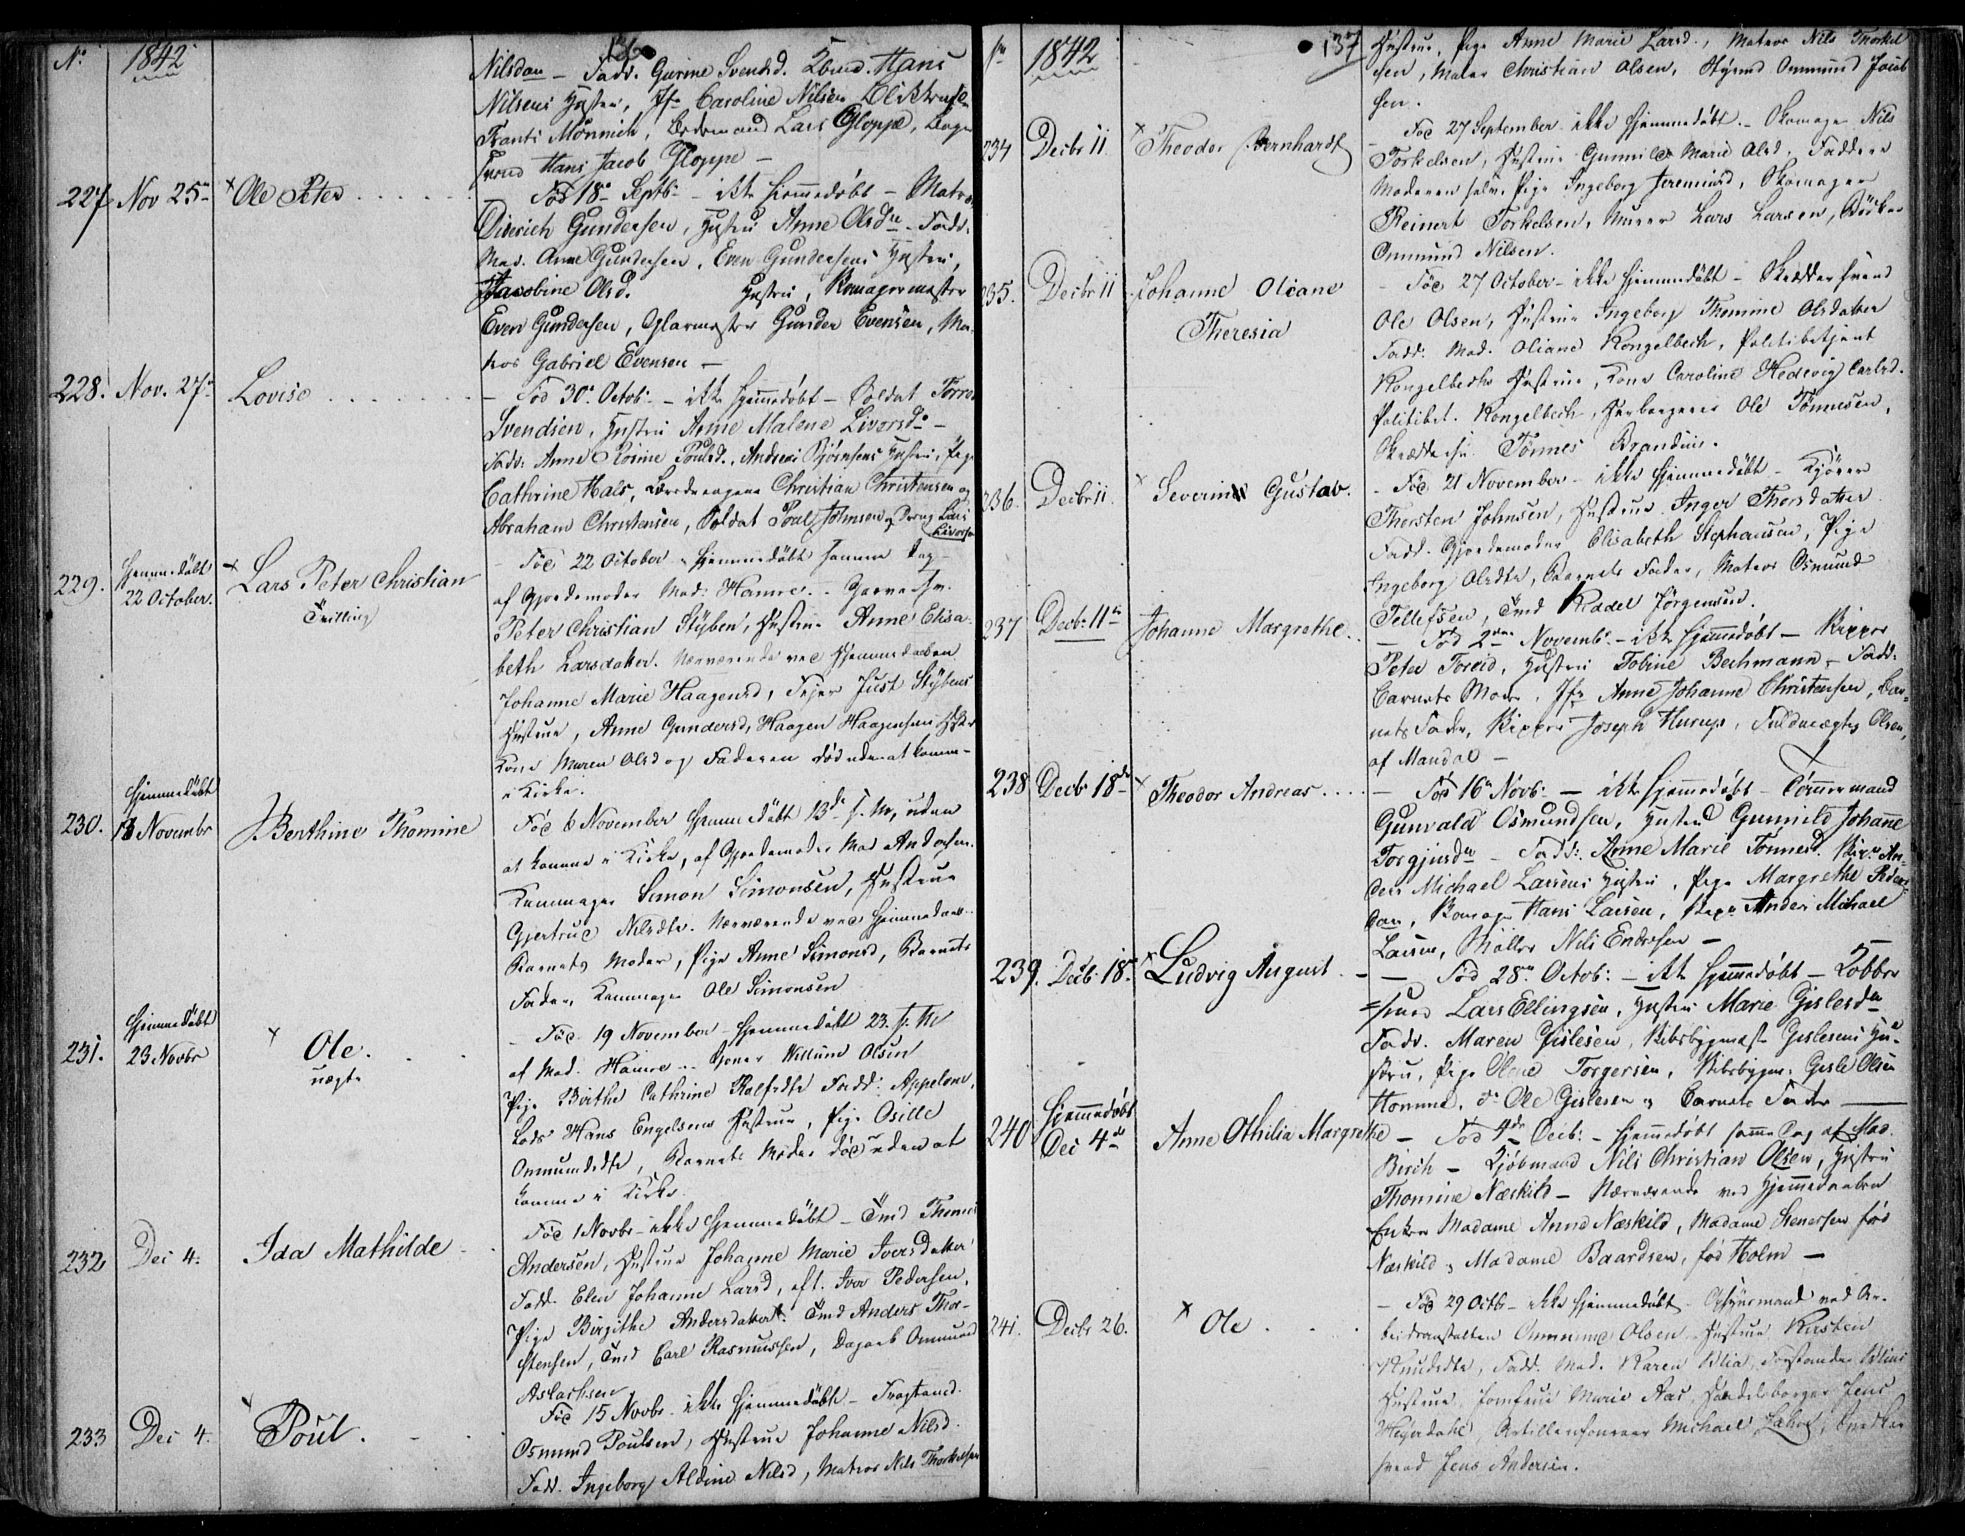 No 1842 136
Nilsdan – Fadd. Gurine Svendsd. Tbmd. Hans
Nilsens Hustru, Jfr Caroline Nilsen
Frants Mönnich, Lars Gloppe,
Hans Jacob Gloppe –
227 Nov 25 Ole Peter
Fød 18 Septb – ikke hjemmedøbt – Matros
Diderich Gundersen, Hustru Anne Olsdn – Fadd.
Mad. Anne Gundersen, Even Gundersens Hustru,
Jacobine Olsd. Hustru, Skomagermester
Even Gundersen, Glarmester Gunder Evensen, Ma-
tros Gabriel Evensen –
228. Nov. 27 Lovise
– Fød 30 Octob. – ikke hjemmedøbt – Soldat
Svendsen, Hustru Anne Malene Livorsd –
Fadd: Anne Rosine Poulsd., Andreas Bjørnsens Hustru, Pige
Cathrine Hals, Christian Christensen og
Abraham Christensen, Soldat Poul Johnsen, Dreng Lars
Livorsn
229. Hjemmedøbt 22 October. Lars Peter Christian
Tvilling
– Fød 22 October – hjemmedøbt samme Dag –
af Gjordemoder Mad: Hamre – Garversv.
Peter Christian Stÿben, Hustru Anne Elisa-
beth Larsdatter. Nærværende ved Hjemmedaaben
Johanne Marie Haagensd, Fejer Just Stÿbens
Hustrue, Anne Gundersd, Haagen Haagensens Hustru
Kone Maren Olsd og Faderen død uden at komme
i Kirke.
230. Hjemmedøbt 13 Novembr Berthine Thomine
Fød 6 November hjemmedøbt 13de s. M., uden
at komme i Kirke, af Gjordemoder Mad
Kammager Simon Simonsen, Hustrue
Gjertrud Nilsdtr. Nærværende ved Hjemmedaab.
Barnets Moder, Pige Anne Simonsd, Barnets
Fader, Kammager Ole Simonsen
231. Hjemmedøbt 23 Novbr Ole.
uægte
– Fød 19 November – hjemmedøbt 23. s. M
af Mad. Hamre – Willum Olsen
Pige Birthe Cathrine Rolfsdtr Fadd: Appelone,
Lods Hans Engelsens Hustrue, Pige Osille
Ommundsdtr, Barnets Moder død uden at
komme i Kirke.
232 Dec 4. Ida Mathilde
Fød 1 Novbr – ikke hjemmedøbt – Tmd Thomas
Andersen, Hustrue Johanne Marie Iversdatter
Fadd. Elen Johanne Larsd, aft. Iver Pedersen,
Pige Birgithe Andersdatter. Tmd Anders Thor-
stensen, Tmd Carl Rasmussen, Dagarb Ommund
Aslachsen
233 Dec 4. Poul.
Fød 15 Novbr. ikke hjemmedøbt –
Osmund Poulsen, Hustrue Johanne Nilsd.
Fadd. Ingeborg Aldine Nilsd, Matros Nils Thorkelsen
No 1842 137
Hustrue, Pige Anne Marie Larsd., Matros Nils Thorkel
sen, Maler Christian Olsen, Styrmd Ommund Jacob
sen.
234 Decbr 11. Theodor Bernhardt
– Fød 27 September – ikke hjemmedøbt. – Skomager Nils
Torkelsen, Hustrue Gunnild Marie Olsd. Faddere
Moderen selv, Pige Ingeborg Jeremiasd, Skomager
Reinert Torkelsen, Murer Lars Larsen, Bødker
Ommund Nilsen.
235. Decbr 11 Johanne Oliane
Theresia
– Fød 27 October – ikke hjemmedøbt – Skræddersvend
Ole Olsen, Hustrue Ingeborg Thomine Olsdatter
Fadd: Mad. Oliane Kongelbech, Politibetjent
Kongelbechs Hustrue, Kone Caroline Hedevig Carlsd.
Politibet. Kongelbech, Herbergerer Ole Tønnesen,
Skræddersv. Tønnes Brandsen.
236. Decbr 11. Severin Gustav.
– Fød 21 November – ikke hjemmedøbt – Kjører
Thorsten Johnsen, Hustrue Inger Thorsdatter
Fadd. Gjordemoder Elisabeth Stephansen, Pige
Ingeborg Olsdtr, Barnets Fader, Matros Osmund
Tellefsen, Tmd Reddel Jørgensen.
237 Decb 11te Johanne Margrethe.
– Fød 2den Novemb. – ikke hjemmedøbt – Skipper
Peter Torsvid, Hustru Tobine Bechmann – Fadd:
Barnets Moder, Jfr Anne Johanne Christensen, Bar-
nets Fader, Skipper Joseph Hurup, Fuldmægtig Olsen,
af Mandal –
238 Decb 18de Theodor Andreas
– Fød 16 Novb. – ikke hjemmedøbt – Tömmermand
Gunvald Osmundsen, Hustru Gunnild Johanne
Torgjusdr – Fadd: Anne Marie Tønnesd. Skipr An-
ders Michael Larsens Hustru, Pige Margrethe Peders-
dan, Skomager Hans Larsen, Skipr Anders Michael
Larsen, Møller Nils Endresen –
239. Decb. 18. Ludvig August.
– Fød 28 Octob: – ikke hjemmedøbt – Kobber
svend Lars Ellingsen, Hustru Marie Gislesdn
Fadd. Maren Gislesen, Skibsbygmestr Gislesens Hu-
stru, Pige Olene Torgersen, Skibsbygm. Gisle Olsen
Homme, do Ole Gislesen og Barnets Fader –
240 Hjemmedøbt Dec 4de Anne Othilia Margrethe
– Fød 4de Decb. – hjemmedøbt samme Dag af Mad.
Birch – Kjøbmand Nils Christian Olsen, Hustru
Thomine Næskild – Nærværende ved Hjemmedaaben
Enken Madame Anne Næskild, Madame Stenersen fød
Næskild og Madame Baardsen, fød Holm –
241. Decbr 26. Ole
– Fød 29 Octbr – ikke hjemmedøbt – Opsynsmand ved Ar-
beidsanstalten Ommund Olsen – Hustrue Kirsten
Knudsdtr, Fadd. Mad. Karen Wilia, Forstander
Hustrue, Jomfrue Marie Aas, Handelsborger Jens
Heyerdahl, Michael
svend Jens Andersen.